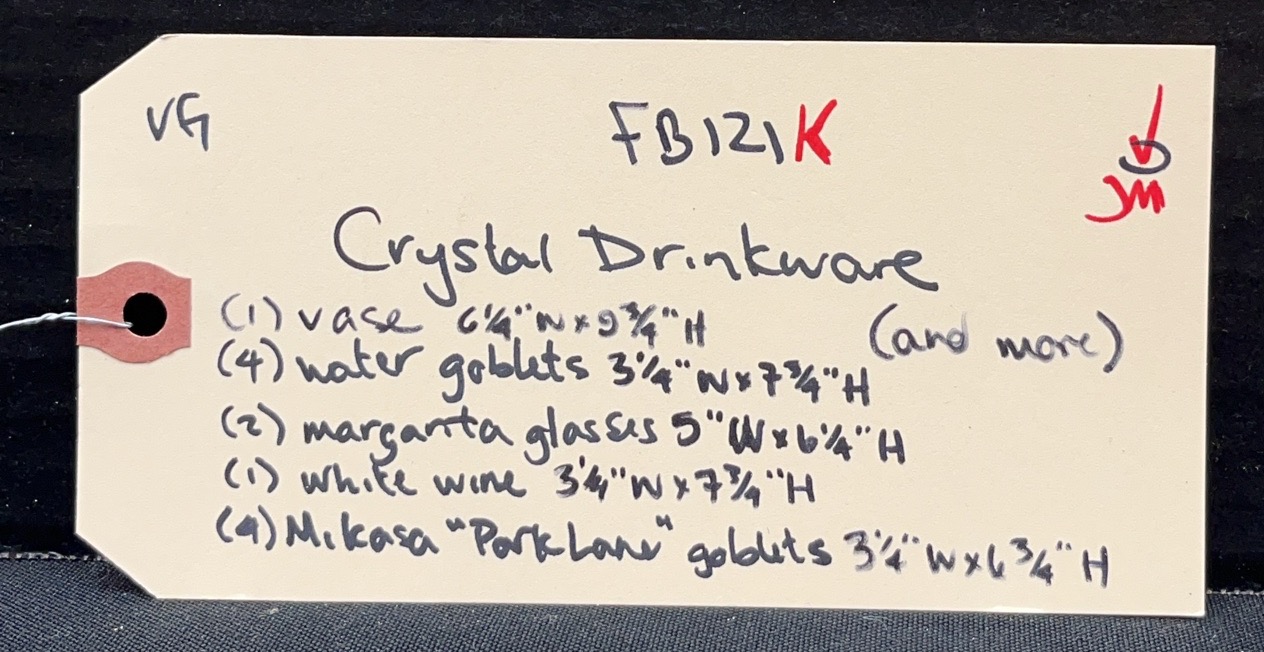 VG
FB121K
JM
Crystal Drinkware
(and more)
(1) vase 6 1/4" W x 9 3/4" H
(4) water goblets 3 1/4" W x 7 3/4" H
(2) margarita glasses 5" W x 6 1/4" H
(1) white wine 3 1/4" W x 7 3/4" H
(4) Mikasa "Park Lane" goblets 3 1/4" W x 6 3/4" H